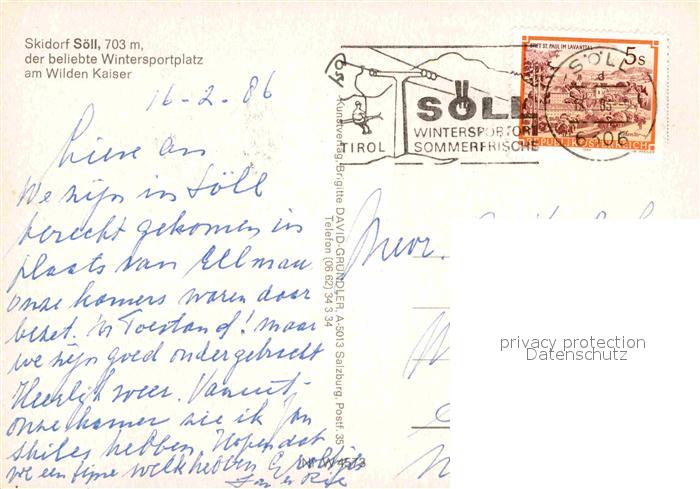 Skidorf Söll, 703 m,
der beliebte Wintersportplatz
am Wilden Kaiser
16-2-86
We zijn in Söll
terecht gekomen in
plaats van Ellmau
onze kamers waren daar
bezet. Toestand! maar
we zijn goed ondergebracht
Heerlijk weer. Vanuit
onze kamer zie ik Jan
skiles hebben Hopen dat
we een fijne week hebben
Kunstverlag Brigitte DAVID-GRÜNDLER, A-5013 Salzburg, Postf. 35
Telefon (06 62) 34 3 34
TIROL
SÖLL
WINTERSPORTORT
SOMMERFRISCHE
STIFT ST. PAUL IM LAVANTTAL
5s
REPUBLIK ÖSTERREICH
SÖLL
6306
Mevr.
privacy protection
Datenschutz